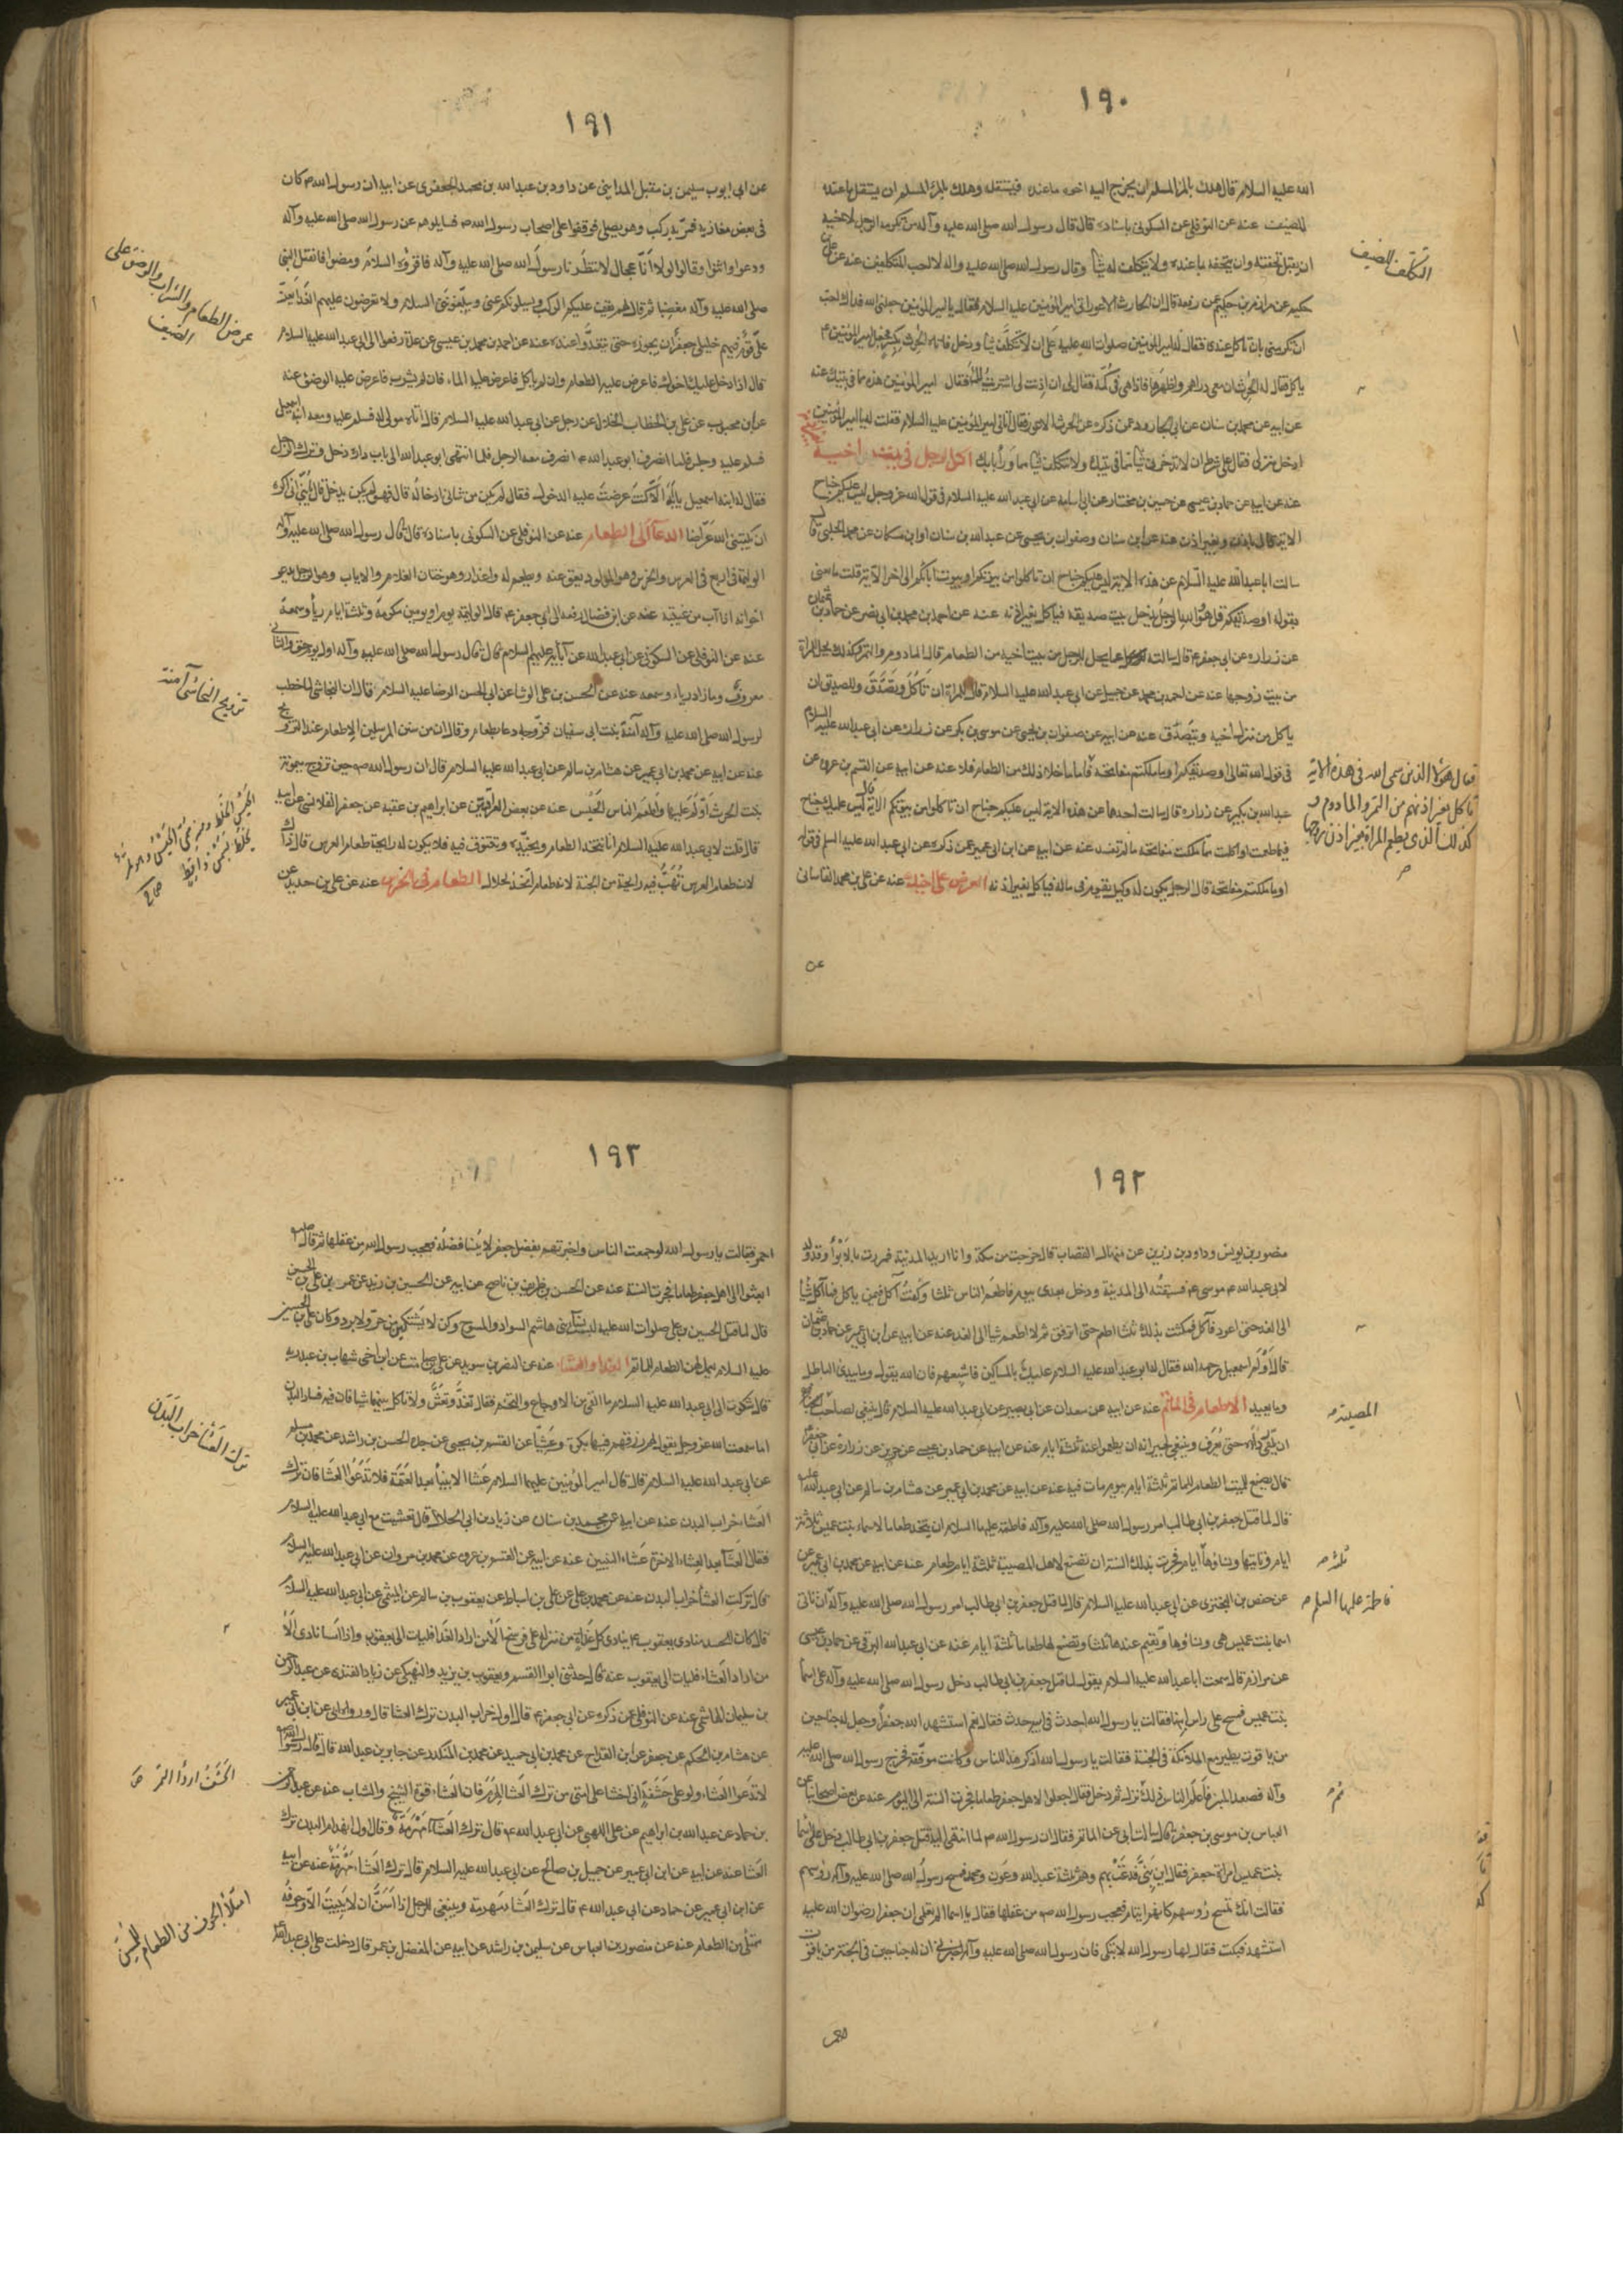 ١٩٠
الله عليه السلام قال هلك بالمرء المسلم ان يخرج اليه اخوه ما عنده فيستقله وهلك بالمرء المسلم ان يستقل ما عنده
للضيف عنه عن النوفلي عن السكوني باسناده قال قال رسول الله صلى الله عليه وآله من تكرمه الرجل لاخيه
ان يقبل تحفته وان يتحفه بما عنده ولا يتكلف له شيئا وقال رسول الله صلى الله عليه واله لا احب المتكلفين عنه عن
حكيم عن مرازم بن حكيم عمن رفعه قال ان الحارث الاعور اتى امير المؤمنين عليه السلام فقال يا امير المؤمنين جعلني الله فداك احب
ان تكرمني بان تأكل عندي فقال له امير المؤمنين صلوات الله عليه على ان لا تتكلف شيئا ودخل فاتاه الحرث بكسر فجعل امير المؤمنين ع
ياكل فقال له الحرث ان معي دراهم واظهرها فاذا هي في كمه فقال لي ان اذنت لي اشتريت فقال امير المؤمنين هذه مما في بيتك عنه
عن ابيه عن محمد بن سنان عن ابي الجارود عمن ذكره عن الحرث الاعور قال اتاني امير المؤمنين عليه السلام فقلت له يا امير المؤمنين
ادخل منزلي فقال على شرط ان لا تدخرني شيئا مما في بيتك ولا تتكلف شيئا مما وراء بابك اكل الرجل في بيت اخيه
عنه عن ابيه عن حماد بن عيسى عن حسين بن مختار عن ابي اسامه عن ابي عبد الله عليه السلام في قول الله عز وجل ليس عليكم جناح
الاية قال باذن وبغير اذن عنه عن ابن سنان وصفوان بن يحيى عن عبد الله بن سنان او ابن مسكان عن محمد الحلبي قال
سالت ابا عبد الله عليه السلام عن هذه الاية ليس عليكم جناح ان تاكلوا من بيوتكم او بيوت ابائكم الى اخر الآية قلت ما يعني
بقوله او صديقكم قال هو والله الرجل يدخل بيت صديقه فياكل بغير اذنه عنه عن احمد بن محمد بن ابي نصر عن حماد بن عثمان
من بيت زوجها عنه عن احمد بن محمد عن جميل عن ابي عبد الله عليه السلام قال للمراة ان تأكل وتصدق وللصديق ان
ياكل من منزل اخيه ويتصدق عنه عن ابيه عن صفوان بن يحيى عن موسى بن بكر عن زرارة عن ابي عبد الله عليه السلام
في قول الله تعالى او صديقكم او ما ملكتم مفاتحه فاما ما خلا ذلك من الطعام فلا عنه عن ابيه عن القسم بن عروة عن
عبد الله بن بكير عن زرارة قال سالت احدهما عن هذه الاية ليس عليكم جناح ان تاكلوا من بيوتكم الاية قال ليس عليك جناح
فيما طعمت او اكلت مما ملكت مفاتحه ما لم تفسد عنه عن ابيه عن ابن ابي عمير عمن ذكره عن ابي عبد الله عليه السلم في قوله
او ما ملكتم مفاتحه قال الرجل يكون له وكيل يقوم في ماله فياكل بغير اذنه العرض على اخيك عنه عن علي بن محمد القاساني
عن
التكلف للضيف
فقال هؤلاء الذين سمى الله في هذه الاية
تأكل بغير اذنهم من التمر والمأدوم و
كذلك الذي يطعم المرأة بغير اذن زوجها
١٩١
عن ابي ايوب سليمن بن مقبل المدايني عن داود بن عبد الله بن محمد الجعفري عن ابيه ان رسول الله ص كان
في بعض مغازيه فمر به ركب وهو يصلي فوقفوا على اصحاب رسول الله ص فسايلوهم عن رسول الله صلى الله عليه وآله
ودعوا واثنوا وقالوا لولا انا عجال لانتظرنا رسول الله صلى الله عليه وآله فاقرؤه السلام ومضوا فانفتل النبي
صلى الله عليه وآله مغضبا ثم قال لهم يقف عليكم الركب ويسئلونكم عني ويبلغوني السلام ولا تعرضون عليهم الغداء يعز
على قوم فيهم خليلي جعفر ان يجوزوه حتى يتغدوا عنده عنه عن احمد بن محمد بن عيسى عن عدة رفعوا الى ابي عبد الله عليه السلام
قال اذا دخل عليك اخوك فاعرض عليه الطعام وان لم ياكل فاعرض عليه الماء فان لم يشرب فاعرض عليه الوضوء عنه
عن ابن محبوب عن علي بن الخطاب الخلال عن رجل عن ابي عبد الله عليه السلام قال اتاه مولى له فسلم عليه ومعه ابنه اسمعيل
فسلم عليه وجلس فلما انصرف ابو عبد الله ع انصرف معه الرجل فلما انتهى ابو عبد الله الى باب داره دخل وترك الرجل
فقال له ابنه اسمعيل يا ابه الا كنت عرضت عليه الدخول فقال لم يكن من شأني ادخاله قال فهو لم يكن يدخل قال يا بني اني اكره
ان يكتبني الله عراضا الدعاء الى الطعام عنه عن النوفلي عن السكوني باسناده قال قال رسول الله صلى الله عليه وآله
الوليمة في اربع في العرس والخرس وهو المولود يعق عنه ويطعم له واعذار وهو ختان الغلام والاياب وهو الرجل يدعو
اخوانه اذا آب من غيبته عنه عن ابن فضال رفعه الى ابي جعفر ع قال الوليمة يوم او يومين مكرمة وثلثة ايام رياء وسمعة
عنه عن النوفلي عن السكوني عن ابي عبد الله عن آبائه عليهم السلام قال قال رسول الله صلى الله عليه وآله اول يوم حق والثاني
معروف وما زاد رياء وسمعه عنه عن الحسن بن علي الوشا عن ابي الحسن الرضا عليه السلام قال ان النجاشي لما خطب
لرسول الله صلى الله عليه وآله آمنة بنت ابي سفيان فزوجه دعا بطعام وقال ان من سنن المرسلين الاطعام عند التزويج
عنه عن ابيه عن محمد بن ابي عمير عن هشام بن سالم عن ابي عبد الله عليه السلام قال ان رسول الله ص حين تزوج ميمونة
بنت الحرث اولم عليها واطعم الناس الحيس عنه عن بعض العراقيين عن ابراهيم بن عقبه عن جعفر القلانسي عن ابيه
قال قلت لابي عبد الله عليه السلام انا نتخذ الطعام ونجيده ونتنوق فيه فلا يكون له رايحة طعام العرس قال ذاك
لان طعام العرس تهب فيه رايحة من الجنة لانه طعام اتخذ لحلال الطعام في الخرس عنه عن علي بن حديد عن
عرض الطعام والشراب والوضوء على
الضيف
تزويج النجاشي آمنة
الحيس الخلط ومنه سمي الحيس وهو تمر
يخلط بسمن واقط
صحاح
١٩٢
منصور بن يونس وداود بن رزين عن منهال القصاب قال خرجت من مكة وانا اريد المدينة فمررت بالابواء وقد ولد
لابي عبد الله ع موسى ع فسبقته الى المدينة ودخل بعدي بيوم فاطعم الناس ثلثا وكنت آكل فيمن ياكل فما آكل شيئا
الى الغد حتى اعود فآكل فمكثت بذلك ثلثا اطعم حتى ارتفق ثم لا اطعم شيئا الى الغد عنه عن ابيه عن ابن ابي عمير عن حماد بن عثمان
قال اولم اسمعيل رحمه الله فقال له ابو عبد الله عليه السلام عليك بالمساكين فاشبعهم فان الله يقول وما يبدئ الباطل
وما يعيد الاطعام في المأتم عنه عن ابيه عن سعدان عن ابي بصير عن ابي عبد الله عليه السلام قال ينبغي لصاحب الجنازة
قال يصنع للميت الطعام للماتم ثلثة ايام بيوم مات فيه عنه عن ابيه عن محمد بن ابي عمير عن هشام بن سالم عن ابي عبد الله عليه
قال لما قتل جعفر بن ابي طالب امر رسول الله صلى الله عليه وآله فاطمة عليها السلام ان يتخذ طعاما لاسماء بنت عميس ثلاثة
ايام وتاتيها ونساؤها ايام فجرت بذلك السنة ان تصنع لاهل المصيبة ثلثة ايام طعام عنه عن ابيه عن محمد بن ابي عمير عن
عن حفص بن البختري عن ابي عبد الله عليه السلام قال لما قتل جعفر بن ابي طالب امر رسول الله صلى الله عليه وآله ان تاتي
اسما بنت عميس هي ونساؤها وتقيم عندها ثلثا وتصنع لها طعاما ثلثة ايام عنه عن ابي عبد الله البرقي عن حماد بن عيسى
عن مرازم قال سمعت ابا عبد الله عليه السلام يقول لما قتل جعفر بن ابي طالب دخل رسول الله صلى الله عليه وآله على اسما
بنت عميس فمسح على راس ابنها فقالت يا رسول الله احدث في ابيه حدث فقال نعم استشهد الله جعفرا وجعل له جناحين
من ياقوت يطير مع الملائكة في الجنة فقالت يا رسول الله اذكر هذا للناس وكانت موفقة فخرج رسول الله صلى الله عليه
وآله فصعد المنبر فاعلم الناس ذلك ثم نزل ثم دخل فقال اجعلوا لاهل جعفر طعاما فجرت السنة الى اليوم عنه عن بعض اصحابنا عن
العباس بن موسى بن جعفر ع قال سالت ابي عن الماتم فقال ان رسول الله ص لما انتهى اليه قتل جعفر بن ابي طالب دخل على اسما
بنت عميس امراة جعفر فقال اين بني فدعت بهم وهم ثلثة عبد الله وعون ومحمد فمسح رسول الله صلى الله عليه وآله رؤسهم
فقالت انك تمسح رؤسهم كانهم ايتام فعجب رسول الله ص من عقلها فقال يا اسما الم تعلمي ان جعفرا رضوان الله عليه
استشهد فبكت فقال لها رسول الله لا تبكي فان رسول الله صلى الله عليه وآله اخبرني ان له جناحين في الجنة من ياقوت
المصيبة
ثلثة
فاطمة عليها السلم
ثم
١٩٣
احمر فقالت يا رسول الله لو جمعت الناس واخبرتهم بفضل جعفر لا ينسا فضله فعجب رسول الله من عقلها ثم قال
ابعثوا الى اهل جعفر طعاما فجرت السنة عنه عن الحسن بن ظريف بن ناصح عن ابيه عن الحسين بن زيد عن عمر بن علي بن الحسين
قال لما قتل الحسين بن علي صلوات الله عليه لبسن نساء بني هاشم السواد والمسوح وكن لا يشتكين من حر ولا برد وكان علي بن الحسين
عليه السلام يعمل لهن الطعام للماتم الغداء والعشاء عنه عن النضر بن سويد عن علي بن صامت عن ابن اخي شهاب بن عبد ربه
قال شكوت الى ابي عبد الله عليه السلام ما القى من الاوجاع والتخم فقال تغد وتعش ولا تاكل بينهما شيئا فان فيه فساد البدن
اما سمعت الله عز وجل يقول لهم رزقهم فيها بكرة وعشيا عن القسم بن يحيى عن جده الحسن بن راشد عن محمد بن مسلم
عن ابي عبد الله عليه السلام قال قال امير المؤمنين عليهما السلام عشاء الانبياء بعد العتمة فلا تدعوا العشاء فان ترك
العشاء خراب البدن عنه عن ابيه عن محمد بن سنان عن زياد بن ابي الحلال قال تعشيت مع ابي عبد الله عليه السلام
فقال العشاء بعد العشاء الاخرة عشاء النبيين عنه عن ابيه عن القسم بن عروة عن محمد بن مروان عن ابي عبد الله عليه السلام
قال ترك العشاء خراب البدن عنه عن محمد بن علي عن علي بن اسباط عن يعقوب بن سالم عن الميثمي عن ابي عبد الله عليه السلام
من اراد العشاء فليات الى يعقوب عنه قال حدثني ابو القسم ويعقوب بن يزيد والنهيكي عن زياد القندي عن عبد الرحمن
بن سليمان الهاشمي عنه عن النوفلي عمن ذكره عن ابي جعفر ع قال اول خراب البدن ترك العشا قال ورواه ابي عن ابن ابي عمير
عن هشام بن الحكم عن جعفر عن ابن القداح عن محمد بن ابي حميد عن محمد بن المنكدر عن جابر بن عبد الله قال قال رسول الله
لا تدعوا العشاء ولو على حشفة اني اخشا على امتي من ترك العشاء الهرم فان العشاء قوة الشيخ والشاب عنه عن عبد الرحمن
بن حماد عن عبد الله بن ابراهيم عن علي اللهبي عن ابي عبد الله ع قال ترك العشاء مهرمة وقال اول انهدام البدن ترك
العشا عنه عن ابيه عن ابن ابي عمير عن جميل بن صالح عن ابي عبد الله عليه السلام قال ترك العشاء مهرمة عنه عن ابيه
عن ابن ابي عمير عن حماد عن ابي عبد الله ع قال ترك العشاء مهرمة وينبغي للرجل اذا اسن ان لا يبيت الا وجوفه
ممتلئ من الطعام عنه عن منصور بن العباس عن سليمن بن راشد عن ابيه عن المفضل بن عمر قال دخلت على ابي عبد الله
ترك العشاء خراب البدن
الحشف اردأ التمر
امتلأ الجوف من الطعام للمسن